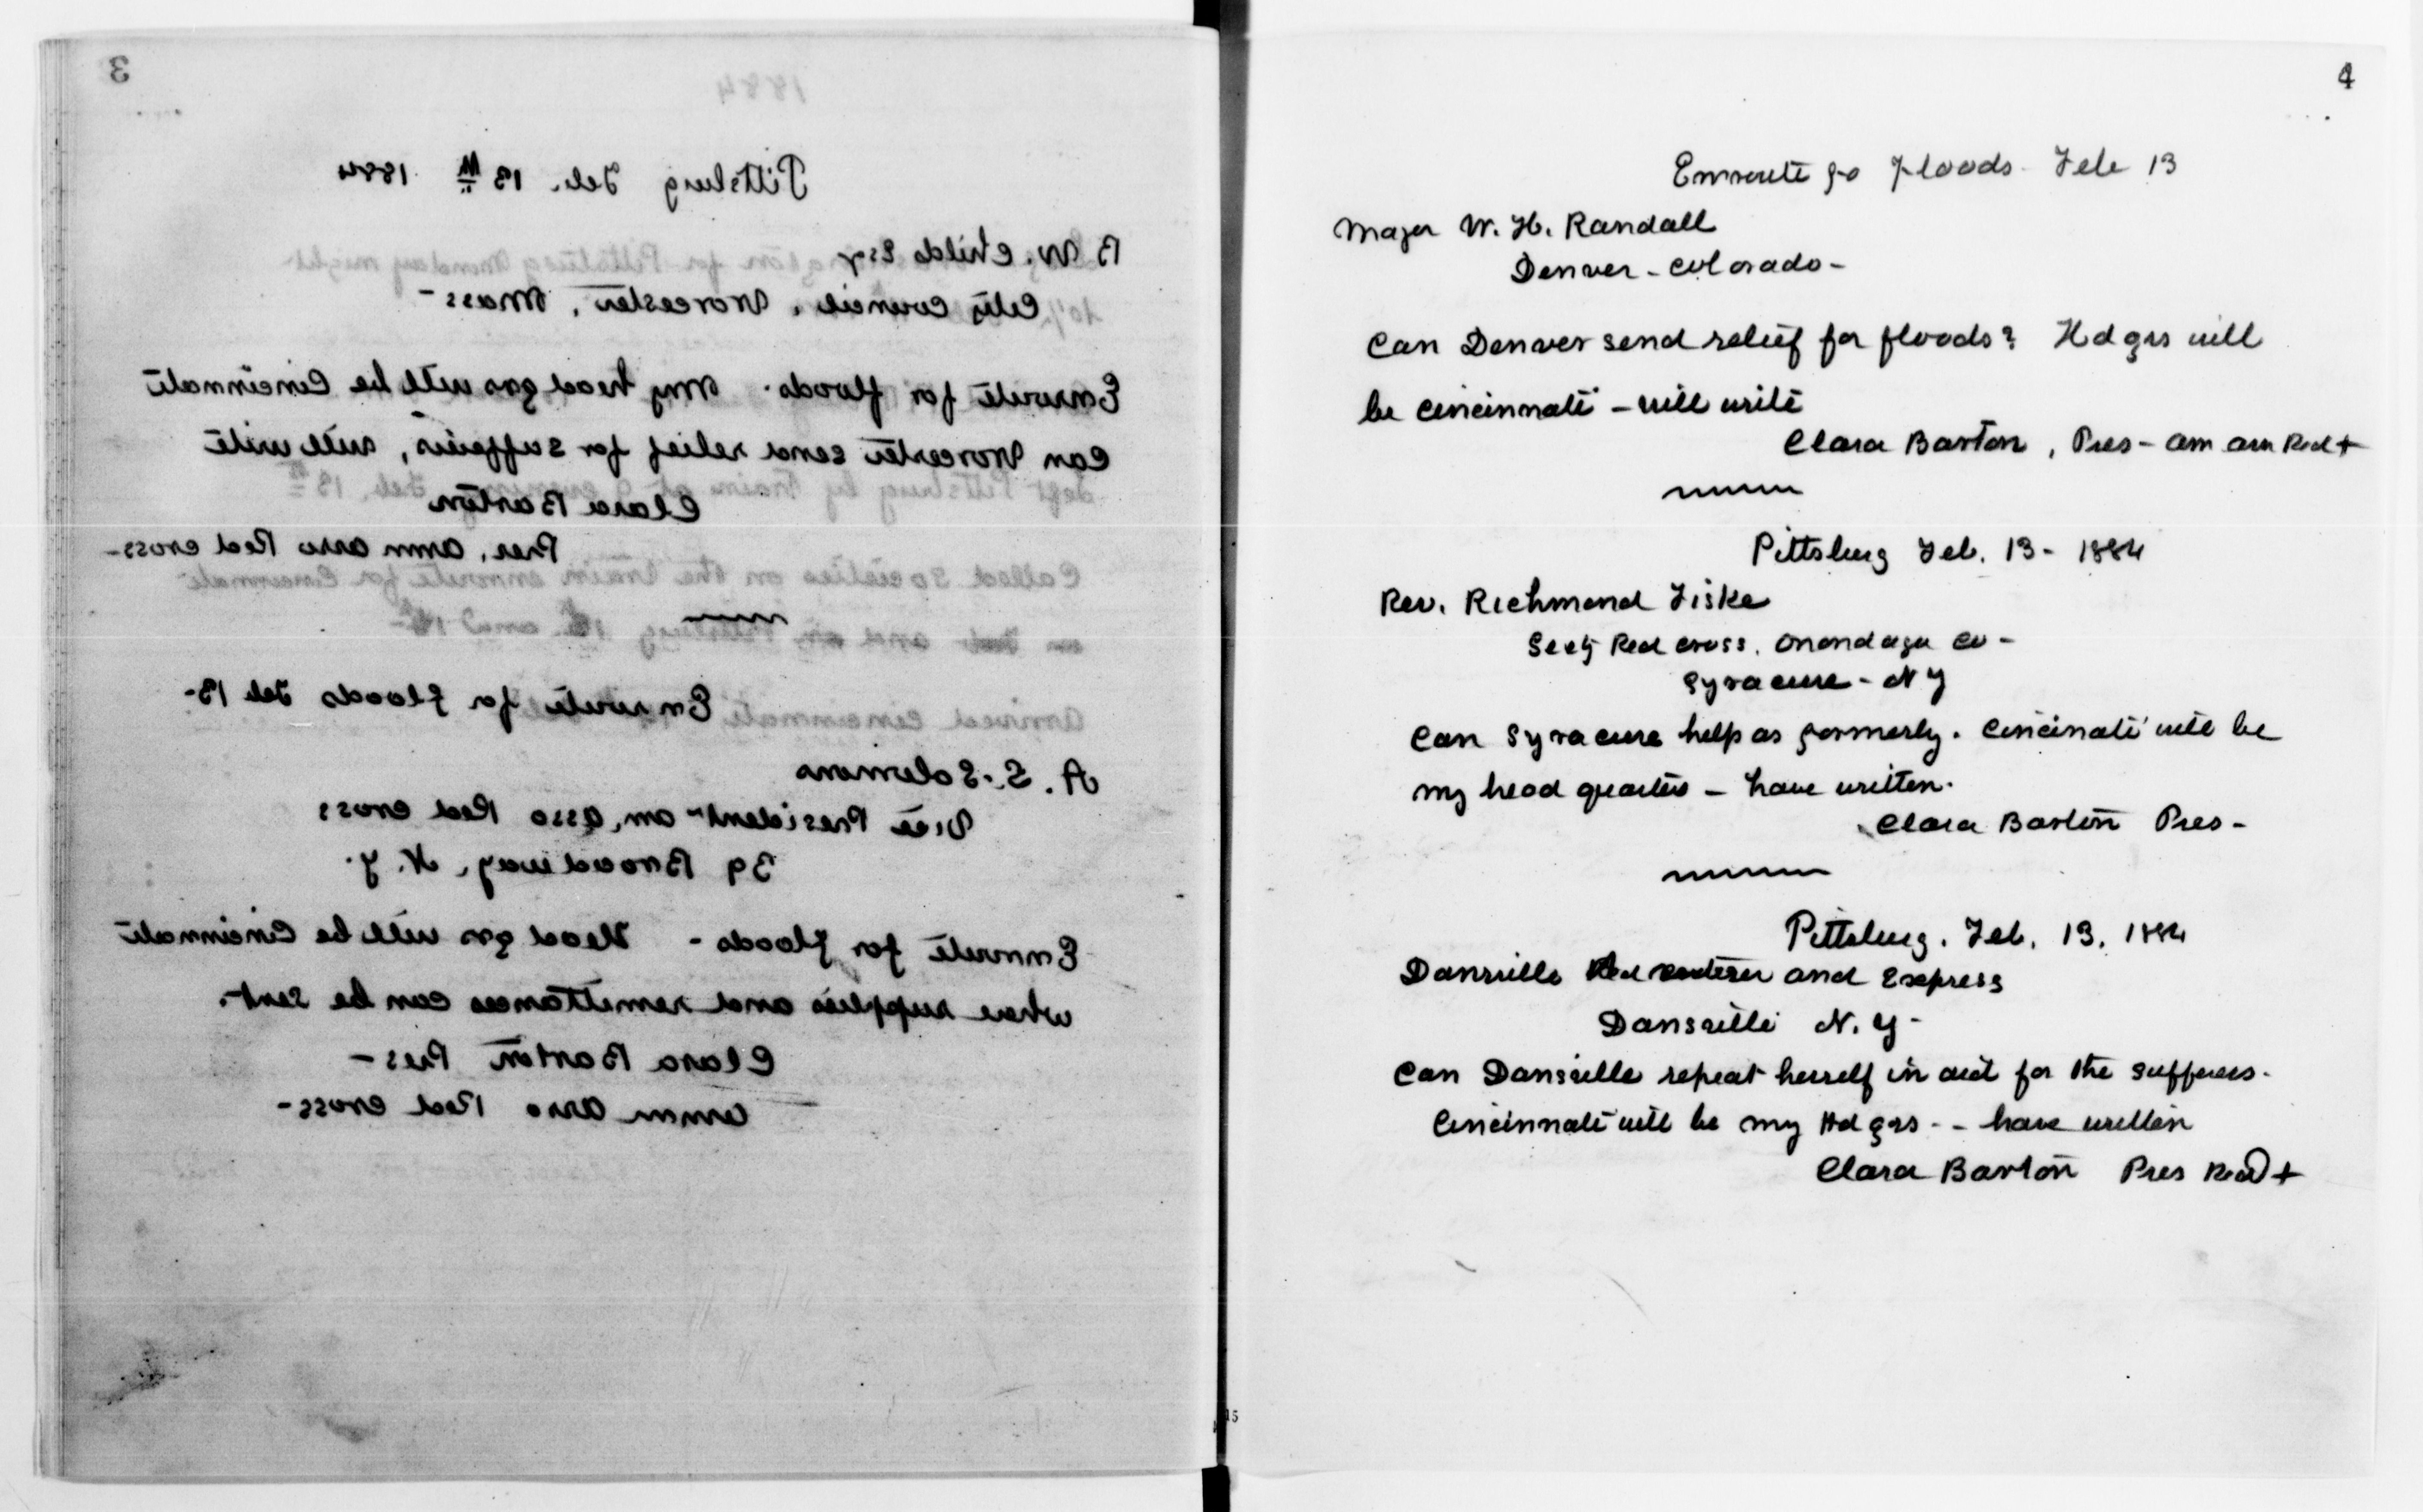 3
1884
Pittsburg Feb. 13th 1884
B. W. Childs Esq
City Council, Worcester, Mass-
Enroute for floods. My head qrs will be Cincinnati
Can Worcester send relief for sufferers, will write
Clara Barton
Pres. Amn Asso Red Cross-
Enroute for floods Feb 13-
A. S. Solomons
Vice President Am. Asso Red Cross
39 Broadway, N. Y.
Enroute for floods - Head qrs will be Cincinnati
where supplies and remittances can be sent.
Clara Barton Pres-
Amn Asso Red Cross-
4
Enroute fo floods Feb 13
Major W. H. Randall
Denver - Colorado-
Can Denver send relief for floods? Hd qrs will
be Cincinnati - will write
Clara Barton, Pres - Am Asn Red +
Pittsburg Feb. 13 - 1884
Rev. Richmond Fiske
Secty Red Cross. Onondaga Co -
Syracuse - N Y
Can Syracuse help as formerly. Cincinati will be
my head quarters - have written.
Clara Barton Pres-
Pittsburg. Feb. 13. 1884
Dansville and Express
Dansville N. Y-
Can Dansville repeat herself in aid for the sufferers.
Cincinnati will be my Hd qrs - - have written
Clara Barton Pres Red +
15